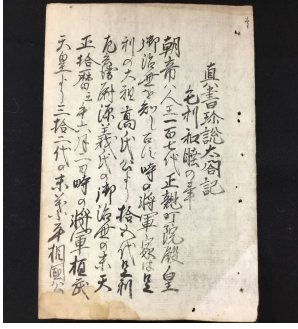 真書珎説太閤記
毛利和睦の事
朝帝人王一百七代正親町院殿皇
御治世を知し召し時の将軍家は足
利の太祖高氏公より拾五代足利
左馬頭源義氏の御治世の末天
正拾暦三年六月一日時の将軍桓武
天皇より三拾二代の末葉平相國公